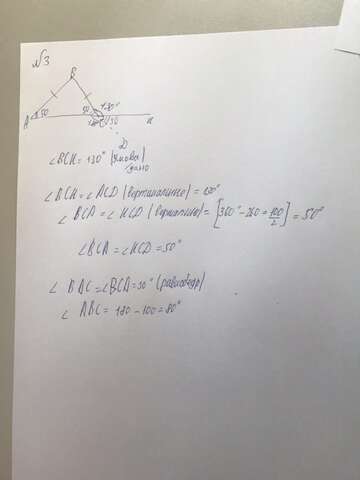 №3
B
A 50 50 130° 130 K
D
∠BCK = 130° (умова)
дано
∠BCK = ∠ACD (вертикальные) = 130°
∠BCA = ∠KCD (вертикальные) = [360° - 260 = 100/2] = 50°
∠BCA = ∠KCD = 50°
∠BAC = ∠BCA = 50° (равнобедр)
∠ABC = 180 - 100 = 80°